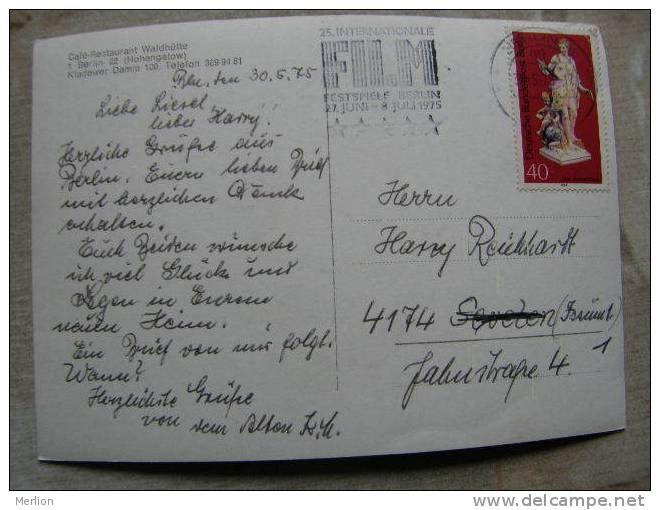 Café-Restaurant Waldhütte
1 Berlin 22 (Hohengatow)
Kladower Damm 100, Telefon 369 94 81
Bln, den 30.5.75
Liebe Liesel
lieber Harry!
Herzliche Grüße aus
Berlin. Euern lieben Brief
mit herzlichen Dank
erhalten.
Euch Beiden wünsche
ich viel Glück und
Segen in Eurem
neuen Heim.
Ein Brief von mir folgt.
Wann?
Herzlichste Grüße
von dem Alten
25. INTERNATIONALE
FILM
FESTSPIELE BERLIN
27. JUNI – 8. JULI 1975
Deutsche Bundespost Berlin
40
Herrn
Harry Reichhardt
4174
Jahnstraße 4
1
Merlion
delcampe.net